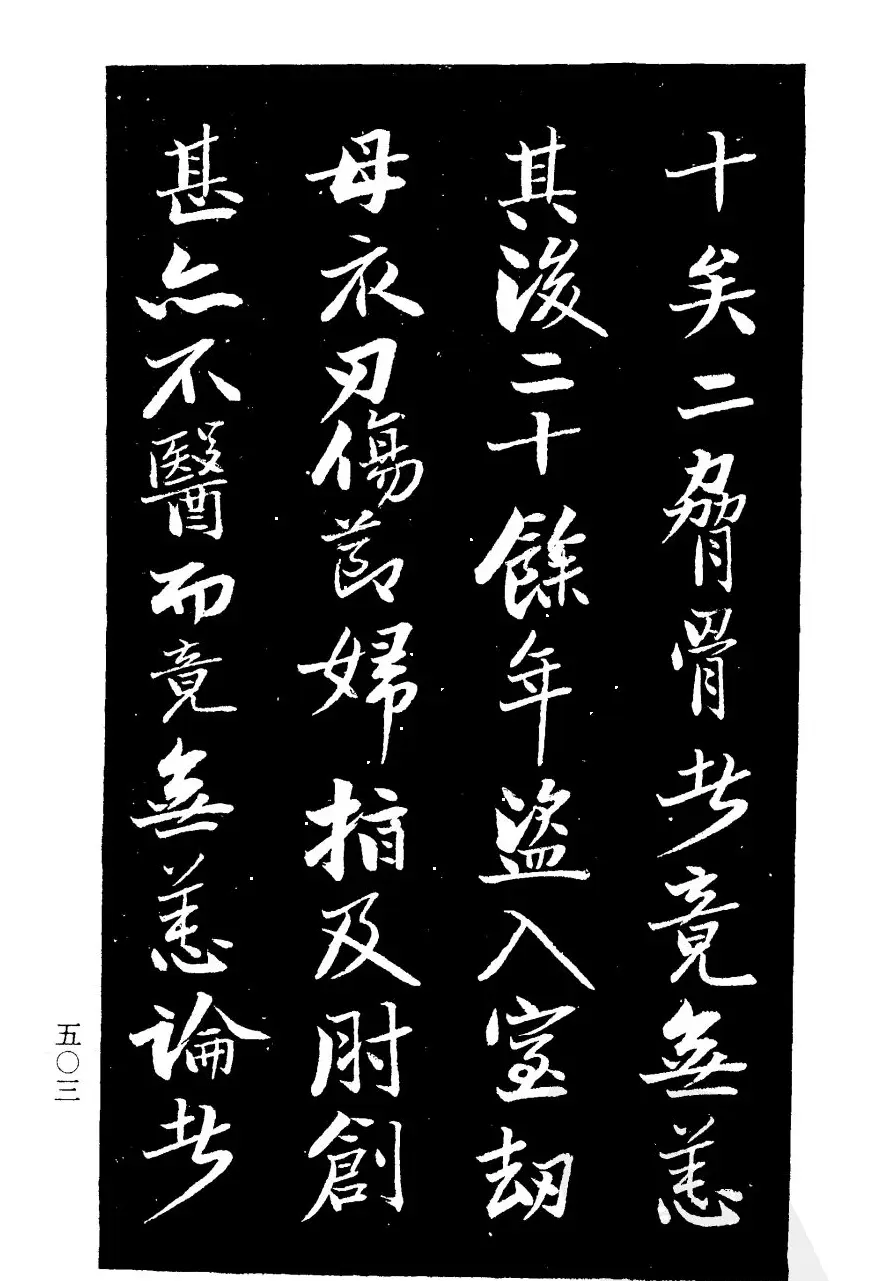 十矣二脅骨者竟無恙
其後二十餘年盜入室劫
母衣刃傷節婦指及肘創
甚亦不醫而竟無恙論者
五〇三